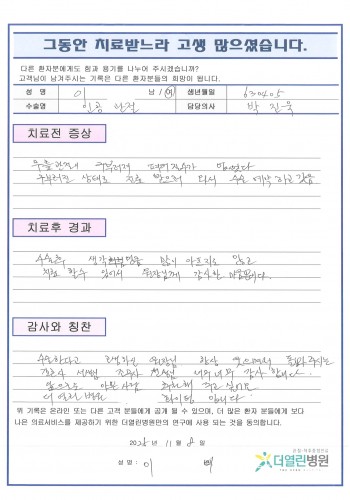 그동안 치료받느라 고생 많으셨습니다.
다른 환자분에게도 힘과 용기를 나누어 주시겠습니까?
고객님이 남겨주시는 기록은 다른 환자분들의 희망이 됩니다.
성 명 이 남 / 여 생년월일 630405
수술명 인공 관절 담당의사 박 진욱
치료전 증상
무릎관절이
구부러진 상태로 치료 받으러 와서 수술 예약 하고 갔음
치료후 경과
수술후 생각 많이 아프지도 않고
치료 할수 있어서 원장님께 감사한 마음뿐이다.
감사와 칭찬
수술하다고 고생하신 원장님 항상 웃으면서
간호사 선생님 조무사 선생님 너무너무 감사 합니다.
앞으로도 아픈 사람 추천해 주고 싶어요
더 열린 병원 화이팅 입니다
위 기록은 온라인 또는 다른 고객 분들에게 공개 될 수 있으며, 더 많은 환자 분들에게 보다
나은 의료서비스를 제공하기 위한 더열린병원만의 연구에 사용 되는 것을 동의합니다.
년 11 월 8 일
성 명 : 이
더열린병원